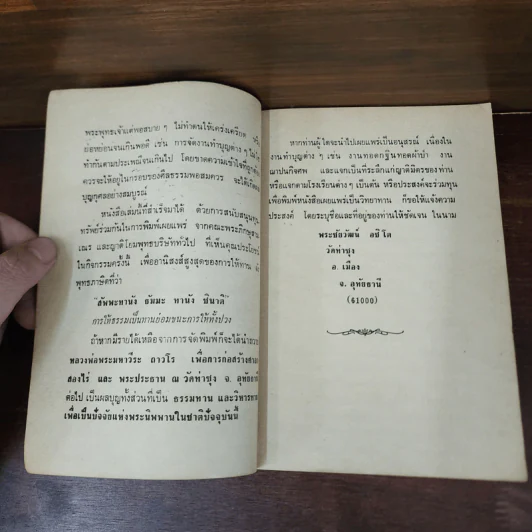 พระพุทธเจ้าแต่พอสบาย ๆ ไม่ทำตนให้เคร่งเครียด
ย่อหย่อนจนเกินพอดี เช่น การจัดงานทำบุญต่าง ๆ
ทำกันตามประเพณีจนเกินไป โดยขาดความเข้าใจที่ถูกต้อง
ควรจะให้อยู่ในกรอบของศีลธรรมพอสมควร จะได้เกิด
บุญกุศลอย่างสมบูรณ์
หนังสือเล่มนี้ที่สำเร็จมาได้ ด้วยการสนับสนุน
ทรัพย์ร่วมกันในการพิมพ์เผยแพร่ จากคณะพระภิกษุ
เณร และญาติโยมพุทธบริษัททั่วไป ที่เห็นคุณประโยชน์
ในกิจกรรมครั้งนี้ เพื่ออานิสงส์สูงสุดของการให้ทาน
พุทธภาษิตที่ว่า
"สัพพะทานัง ธัมมะ ทานัง ชินาติ"
การให้ธรรมเป็นทานย่อมชนะการให้ทั้งปวง
ถ้าหากมีรายได้เหลือจากการจัดพิมพ์ก็จะได้นำ
หลวงพ่อพระมหาวีระ ถาวโร เพื่อการก่อสร้าง
สองไร่ และ พระประธาน ณ วัดท่าซุง จ. อุทัยธานี
ต่อไป เป็นผลบุญทั้งส่วนที่เป็น ธรรมทาน และวิหารทาน
เพื่อเป็นปัจจัยแห่งพระนิพพานในชาติปัจจุบันนี้
หากท่านผู้ใดจะนำไปเผยแพร่เป็นอนุสรณ์ เนื่องใน
งานทำบุญต่าง ๆ เช่น งานทอดกฐินทอดผ้าป่า งาน
ฌาปนกิจศพ และแจกเป็นที่ระลึกแก่ญาติมิตรของท่าน
หรือแจกตามโรงเรียนต่าง ๆ เป็นต้น หรือประสงค์จะร่วมทุน
เพื่อพิมพ์หนังสือเผยแพร่เป็นวิทยาทาน ก็ขอให้แจ้งความ
ประสงค์ โดยระบุชื่อและที่อยู่ของท่านให้ชัดเจน ในนาม
พระชัยวัฒน์ อชิโต
วัดท่าซุง
อ. เมือง
จ. อุทัยธานี
(61000)